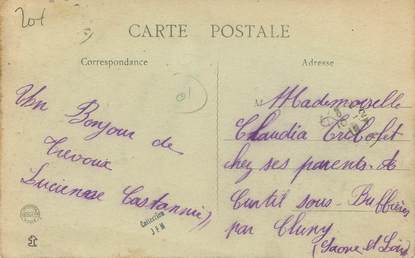 20f
CARTE POSTALE
Correspondance
Adresse
Un Bonjour de
Trevoux
Lucienne Castannier
Collection
J F M
M
Mademoiselle
Claudia
chez ses parents. A
Curtil sous-Buffières
par Cluny
(Saone et Loire